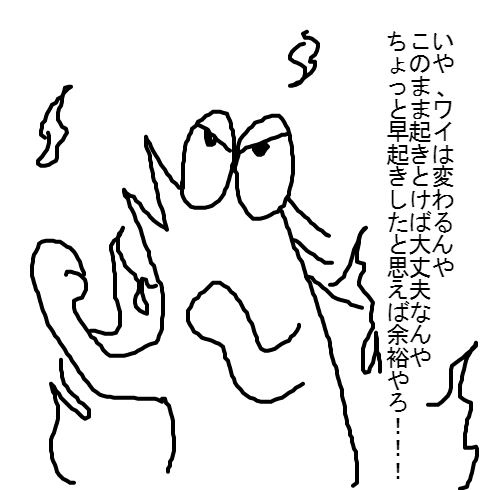 いや、ワイは変わるんや
このまま起きとけば大丈夫なんや
ちょっと早起きしたと思えば余裕やろ！！！